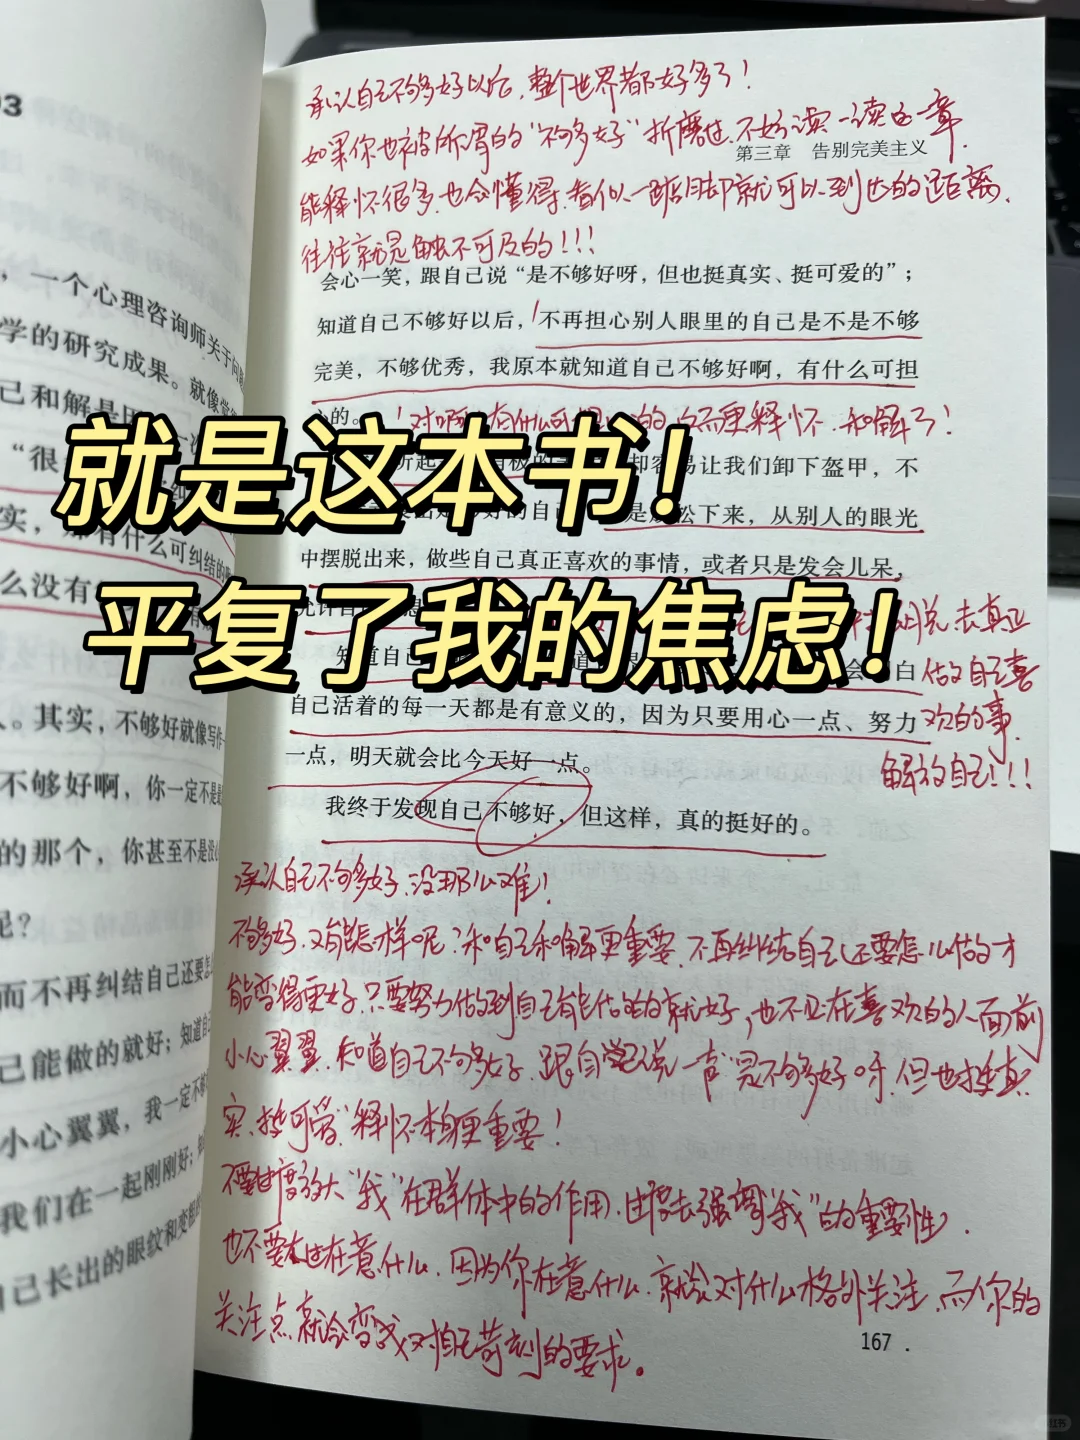 就是这本书！
平复了我的焦虑！
承认自己不够好以后，整个世界都好多了！
如果你也被所谓的“不够好”折磨过，不妨读一读这一章，
第三章 告别完美主义
能释怀很多，也会懂得，看似一踮脚就可以到达的距离，
往往就是触不可及的！！！
会心一笑，跟自己说“是不够好呀，但也挺真实、挺可爱的”；
知道自己不够好以后，不再担心别人眼里的自己是不是不够
完美，不够优秀，我原本就知道自己不够好啊，有什么可担
心的。
对啊，有什么可担心的 更释怀、和解了！
却容易让我们卸下盔甲，不
的自己 是放松下来，从别人的眼光
中摆脱出来，做些自己真正喜欢的事情，或者只是发会儿呆，
去真正
知道自己 会明白
做自己喜
自己活着的每一天都是有意义的，因为只要用心一点、努力
欢的事，
一点，明天就会比今天好一点。
解放自己！！！
我终于发现自己不够好，但这样，真的挺好的。
承认自己不够好，没那么难！
不够好，又能怎样呢？和自己和解更重要，不再纠结自己还要怎么做才
能变得更好，只要努力做到自己能做的就好，也不必在喜欢的人面前
小心翼翼，知道自己不够好，跟自己说一声“是不够好呀，但也挺真
实、挺可爱”释怀本身更重要！
不要过度放大“我”在群体中的作用，过度去强调“我”的重要性，
也不要太过在意什么，因为你在意什么，就会对什么格外关注，而你的
关注点就会变成对自己苛刻的要求。
167
03
，一个心理咨询师关于
学的研究成果。就像
己和解是
“很
实，那有什么可纠结的
么没有
人。其实，不够好就像写作
不够好啊，你一定不是最
的那个，你甚至不是
呢？
而不再纠结自己还要怎
己能做的就好；知道自
小心翼翼，我一定不够
我们在一起刚刚好；
自己长出的眼纹和变粗